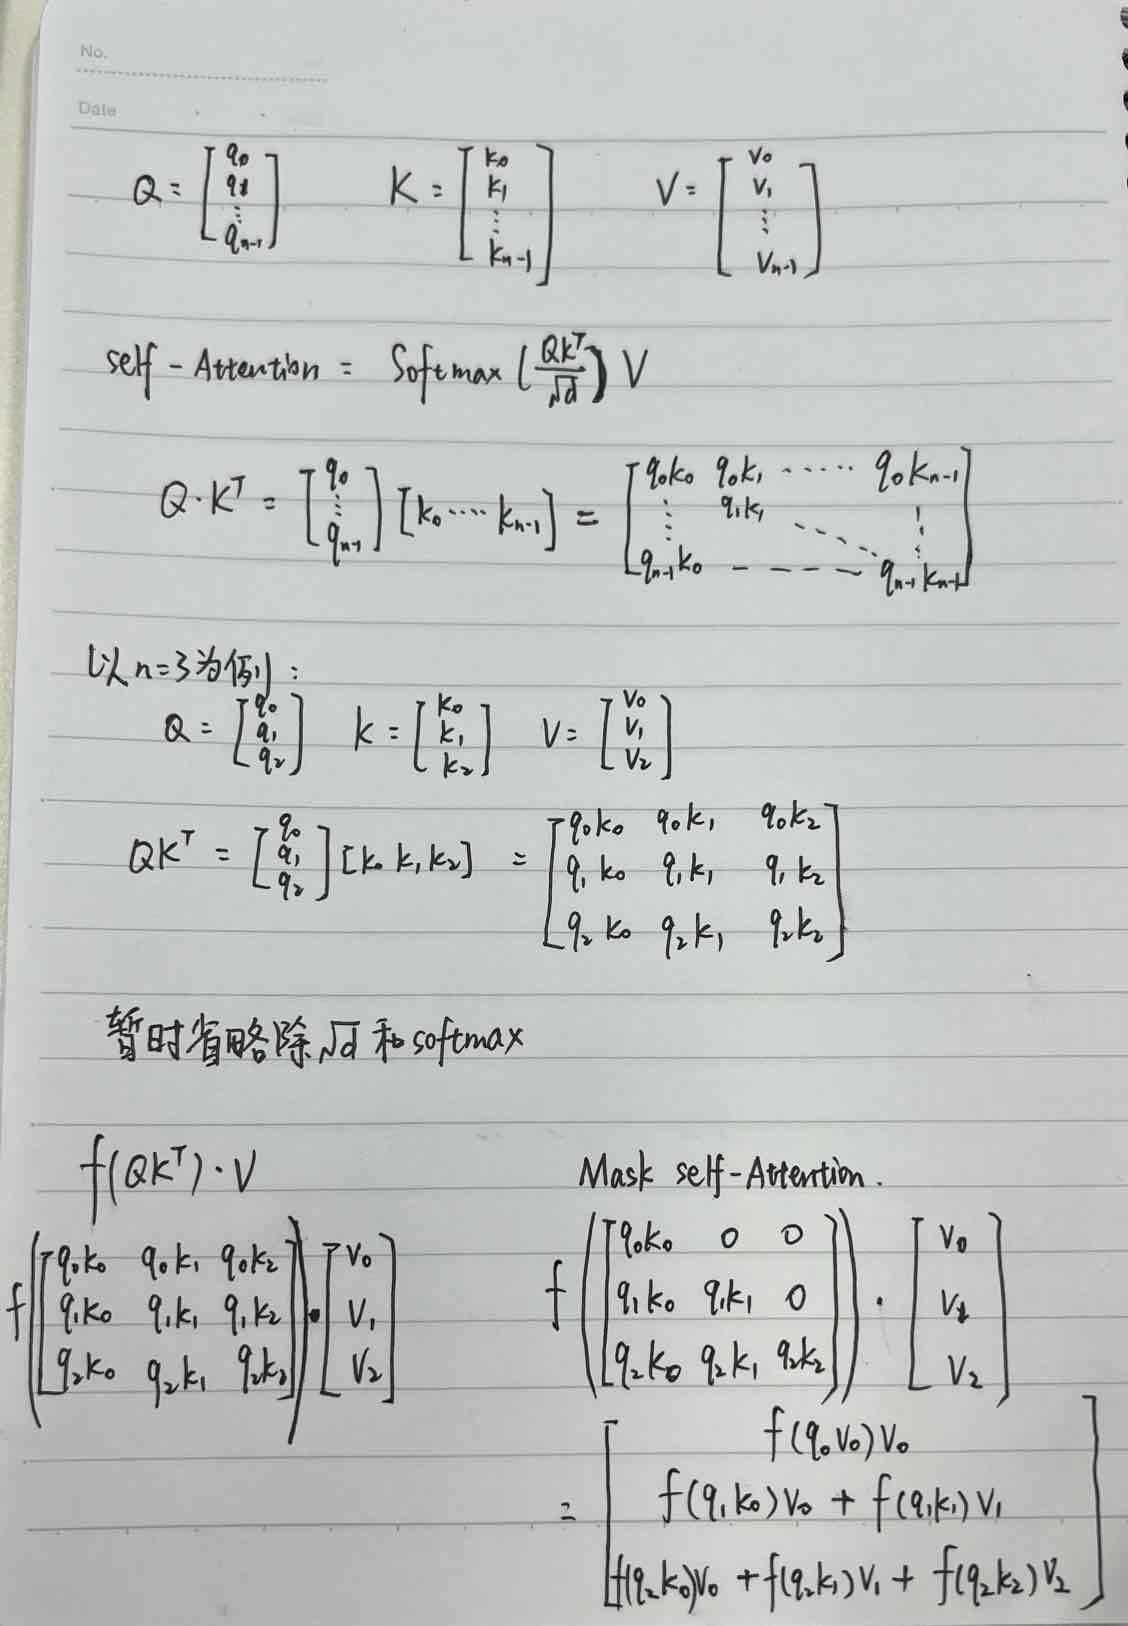 No.
Date
Q = [q₀ q₁ ⋮ qₙ₋₁] K = [k₀ k₁ ⋮ kₙ₋₁] V = [v₀ v₁ ⋮ vₙ₋₁]
self-Attention = Softmax (QKᵀ/√d) V
Q·Kᵀ = [q₀ ⋮ qₙ₋₁] [k₀ ····· kₙ₋₁] = [q₀k₀ q₀k₁ ······ q₀kₙ₋₁
⋮ q₁k₁ ⋱ ⋮
qₙ₋₁k₀ – – – – – qₙ₋₁kₙ₋₁]
以n=3为例:
Q = [q₀ q₁ q₂] k = [k₀ k₁ k₂] V = [v₀ v₁ v₂]
QKᵀ = [q₀ q₁ q₂] [k₀ k₁ k₂] = [q₀k₀ q₀k₁ q₀k₂
q₁k₀ q₁k₁ q₁k₂
q₂k₀ q₂k₁ q₂k₂]
暂时省略除√d和softmax
f(QKᵀ)·V
f([q₀k₀ q₀k₁ q₀k₂
q₁k₀ q₁k₁ q₁k₂
q₂k₀ q₂k₁ q₂k₂])·[v₀ v₁ v₂]
Mask self-Attention.
f([q₀k₀ 0 0
q₁k₀ q₁k₁ 0
q₂k₀ q₂k₁ q₂k₂])·[v₀ v₁ v₂]
= [f(q₀v₀)v₀
f(q₁k₀)v₀ + f(q₁k₁)v₁
f(q₂k₀)v₀ + f(q₂k₁)v₁ + f(q₂k₂)v₂]